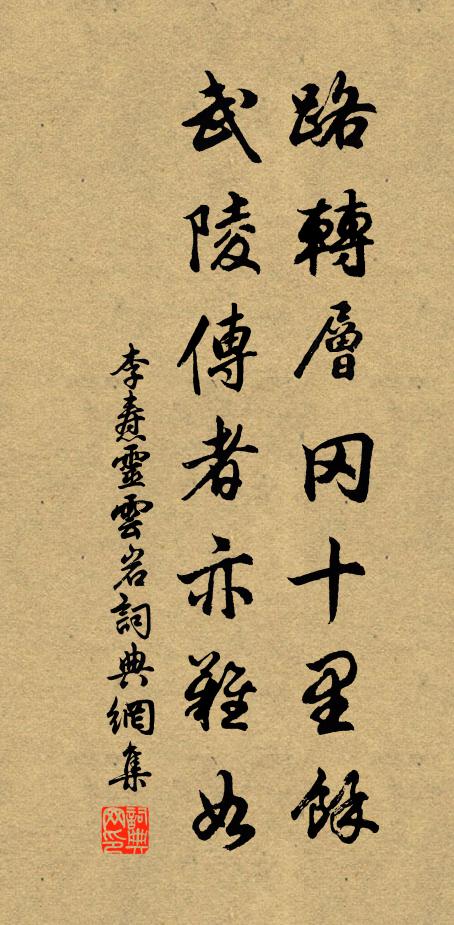 路轉層岡十里餘
武陵傳者亦難如
李燾靈雲岩詞典網集
詞典網印